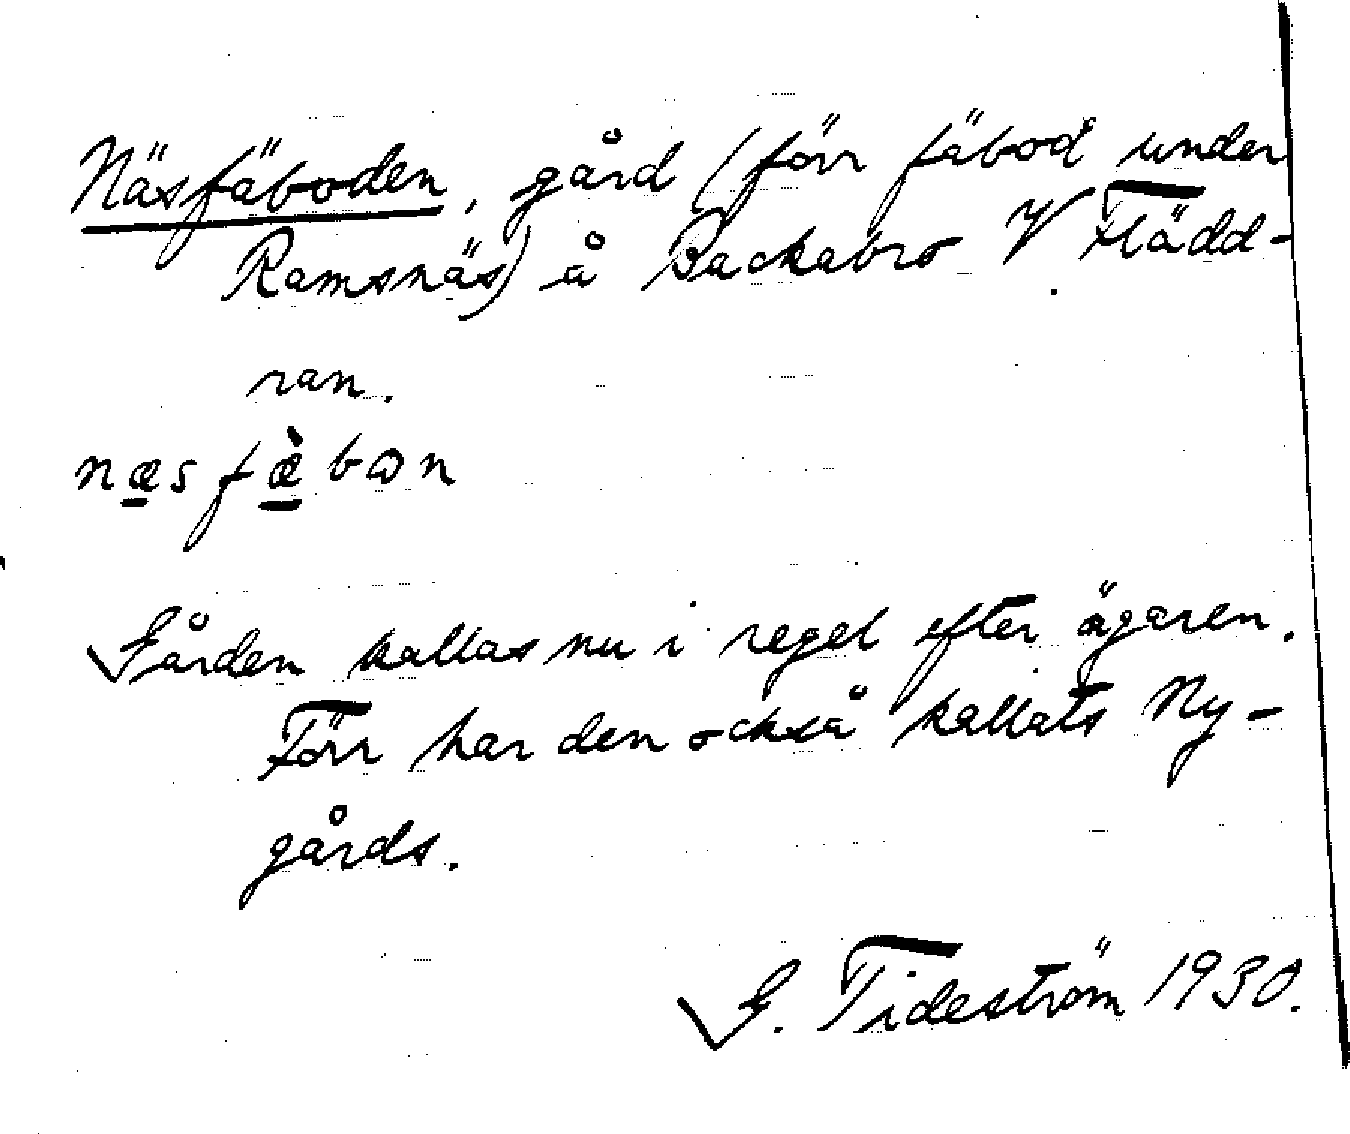 Näsfäboden, gård (förr fäbod under
Ramsnäs) å Backabro V. Flädd-
ran.
næsfæ̀bɷn
Gården kallas nu i regel efter ägaren.
Förr har den också kallats Ny-
gårds.
G. Tideström 1930.